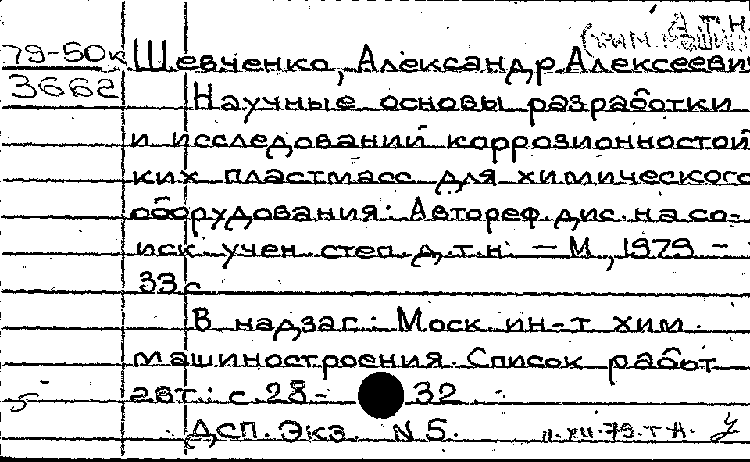 Д.Т.Н.
(хим.
79-50к Шевченко, Александр Алексееви
3662 Научные основы разработки
и исследований коррозионностой
ких пластмасс для химического
оборудования: Автореф.дис.на со-
иск учен степ.д.т.н. — М, 1979 -
33с
В надзаг: Моск ин-т хим.
машиностроения. Список работ
авт.: с.28- 32
5
ДСП. Экз. N 5. 11.XII.79.Т А.